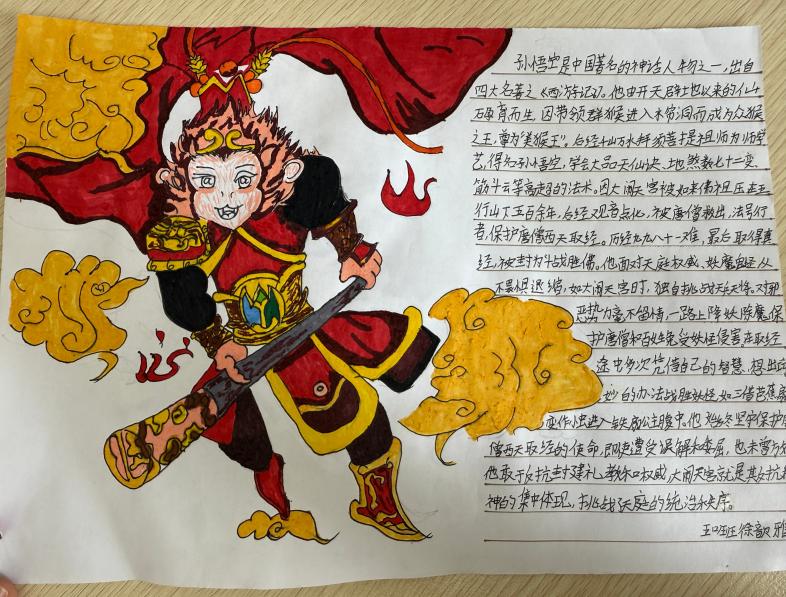 孙悟空是中国著名的神话人物之一，出自
四大名著之《西游记》。他由开天辟地以来的仙
石孕育而生，因带领群猴进入水帘洞而成为众猴
之王，尊为"美猴王"。后经千山万水拜须菩提祖师为师学
艺，得名孙悟空，学会大品天仙诀、地煞数七十二变、
筋斗云等高超的法术。因大闹天宫被如来佛祖压在五
行山下五百余年，后经观音点化，被唐僧救出，法号行
者，保护唐僧西天取经。历经九九八十一难，最后取得真
经，被封为斗战胜佛。他面对天庭权威、妖魔鬼怪从
不畏惧退缩，如大闹天宫时，独自挑战天兵天将，对邪
恶势力毫不留情，一路上降妖除魔，保
护唐僧和百姓免受妖怪侵害在取经
途中多次凭借自己的智慧，想出
妙的办法战胜妖怪，如三借芭蕉扇
变作小虫进入铁扇公主腹中。他始终坚守保护唐
僧西天取经的使命，即使遭受误解和委屈，也未曾
他敢于反抗封建礼教和权威，大闹天宫就是其反抗精
神的集中体现，挑战天庭的统治秩序。
徐歆雅